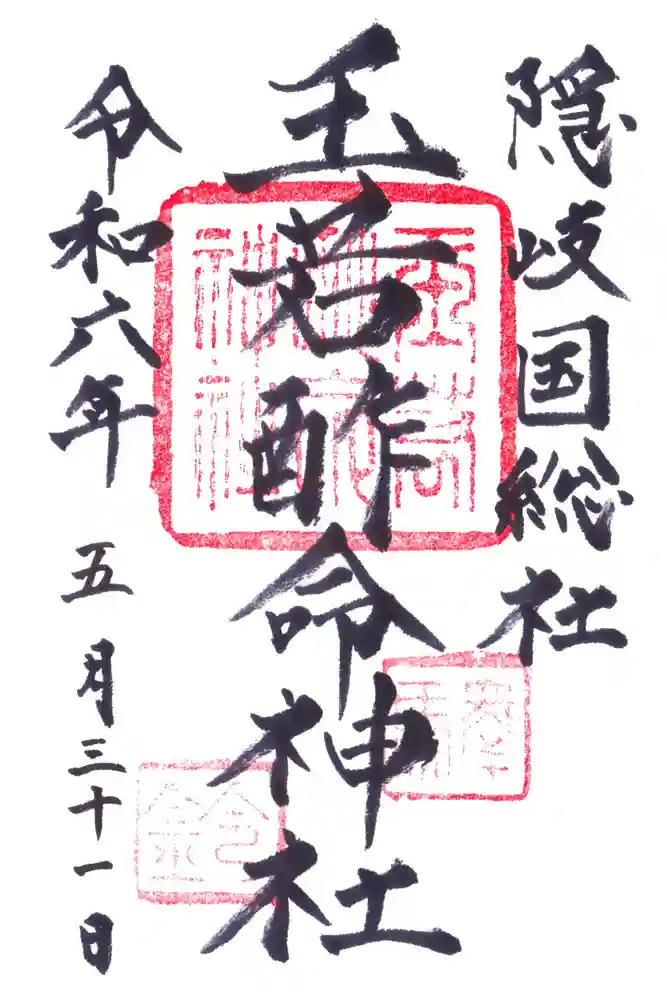 隠岐国総社
玉若酢命神社
令和六年 五月三十一日